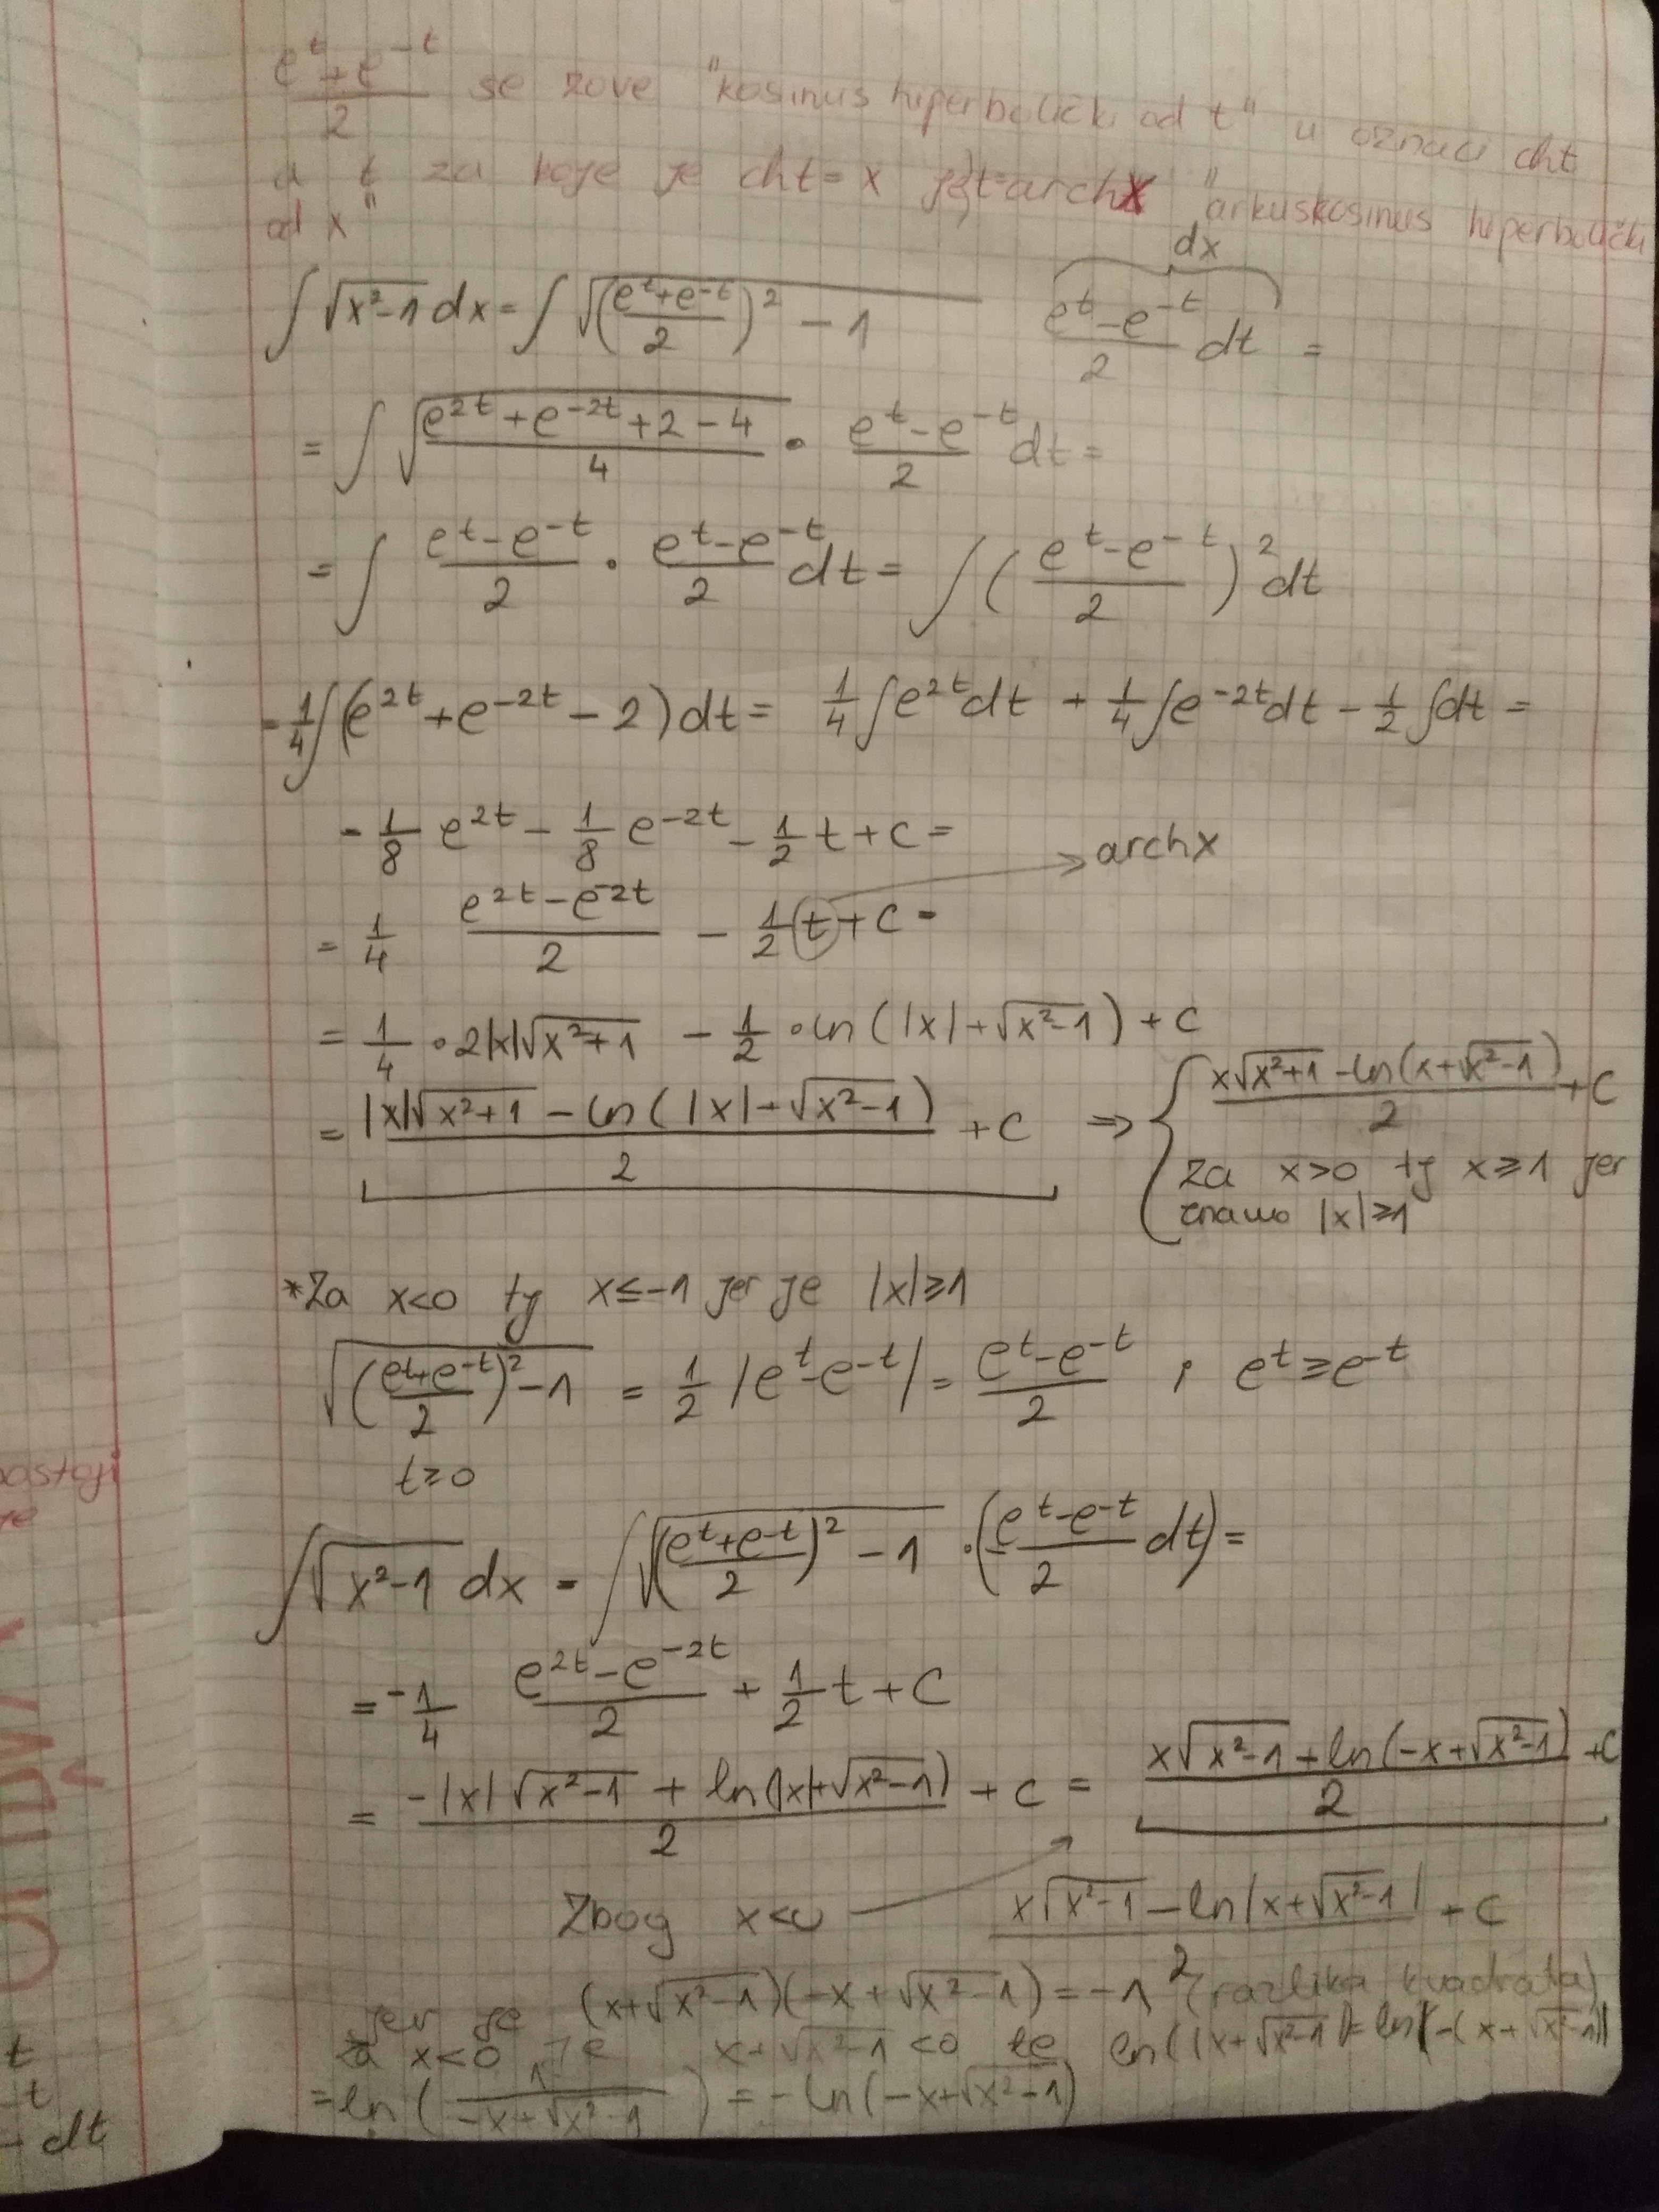 (e^t + e^-t)/2 se zove "kosinus hiperbolički od t" u oznaci cht
a t za koje je cht = x je t = archx "arkuskosinus hiperbolički
od x"
dx
∫√(x²-1) dx = ∫√(((e^t+e^-t)/2)² - 1) (e^t - e^-t)/2 dt =
= ∫√((e^2t + e^-2t + 2 - 4)/4) · (e^t - e^-t)/2 dt =
= ∫ (e^t - e^-t)/2 · (e^t - e^-t)/2 dt = ∫((e^t - e^-t)/2)² dt
= 1/4 ∫(e^2t + e^-2t - 2) dt = 1/4 ∫e^2t dt + 1/4 ∫e^-2t dt - 1/2 ∫dt =
- 1/8 e^2t - 1/8 e^-2t - 1/2 t + C =
→ archx
= 1/4 (e^2t - e^-2t)/2 - 1/2 t + C =
= 1/4 · 2|x|√(x²+1) - 1/2 · ln(|x| + √(x²-1)) + C
= (|x|√(x²+1) - ln(|x| + √(x²-1)))/2 + C ⇒ { (x√(x²+1) - ln(x+√(x²-1)))/2 + C
za x>0 tj x≥1 jer
znamo |x|≥1
*Za x<0 tj x≤-1 jer je |x|≥1
√(((e^t+e^-t)/2)² - 1) = 1/2 |e^t - e^-t| = (e^t - e^-t)/2 ; e^t ≥ e^-t
t≥0
∫√(x²-1) dx = ∫√(((e^t+e^-t)/2)² - 1) · (- (e^t - e^-t)/2 dt) =
= -1/4 (e^2t - e^-2t)/2 + 1/2 t + C
= (-|x|√(x²-1) + ln(|x|+√(x²-1)))/2 + C = (x√(x²-1) + ln(-x+√(x²-1)))/2 + C
Zbog x<0 → (x√(x²-1) - ln|x+√(x²-1)|)/2 + C
jer je (x+√(x²-1))(-x+√(x²-1)) = -1 (razlika kvadrata)
za x<0 je x+√(x²-1) <0 te ln(|x+√(x²-1)|) = ln(-(x+√(x²-1)))
= ln(1/(-x+√(x²-1))) = -ln(-x+√(x²-1))
postoji
t
-t
dt